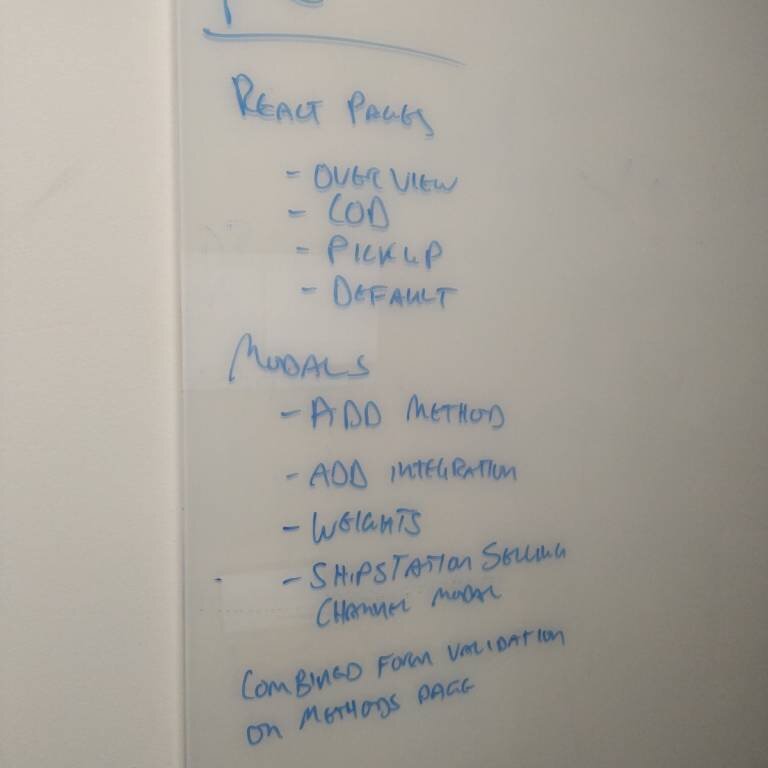 REACT PAGES
- OVERVIEW
- COD
- PICKUP
- DEFAULT
MODALS
- ADD METHOD
- ADD INTEGRATION
- WEIGHTS
- SHIPSTATION SELLING
CHANNEL MODAL
COMBINED FORM VALIDATION
ON METHODS PAGE